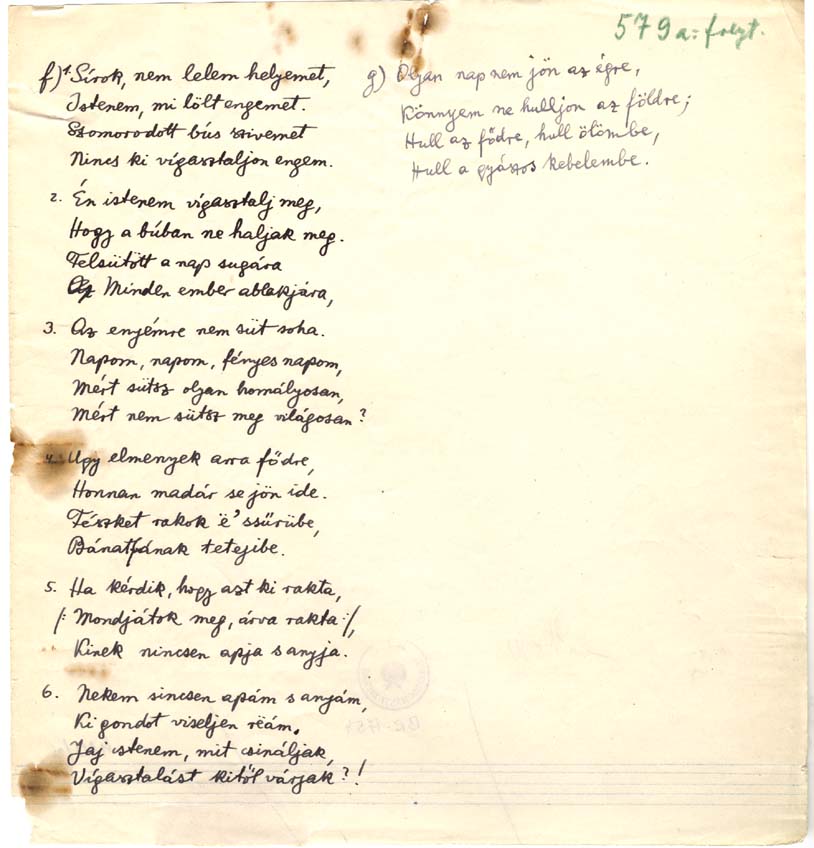 579a: folyt.
f) 1. Sírok, nem lelem helyemet,
Istenem, mi lölt engemet.
Szomorodott bús szivemet
Nincs ki vígasztaljon engem.
2. Én istenem vígasztalj meg,
Hogy a búban ne haljak meg.
Felsütött a nap sugára
Minden ember ablakjára,
3. Az enyémre nem süt soha.
Napom, napom, fényes napom,
Mért sütsz olyan homályosan,
Mért nem sütsz meg világosan?
4. Ugy elmenyek arra fődre,
Honnan madár se jön ide.
Fészket rakok ë' ssűrübe,
Bánatfának tetejibe.
5. Ha kérdik, hogy azt ki rakta,
/: Mondjátok meg, árva rakta :/,
Kinek nincsen apja s anyja.
6. Nekem sincsen apám s anyám,
Ki gondot viseljen rëám.
Jaj istenem, mit csináljak,
Vígasztalást kitől várjak?!
g) Olyan nap nem jön az égre,
Könnyem ne hulljon az földre;
Hull az fődre, hull ölömbe,
Hull a gyászos kebelembe.